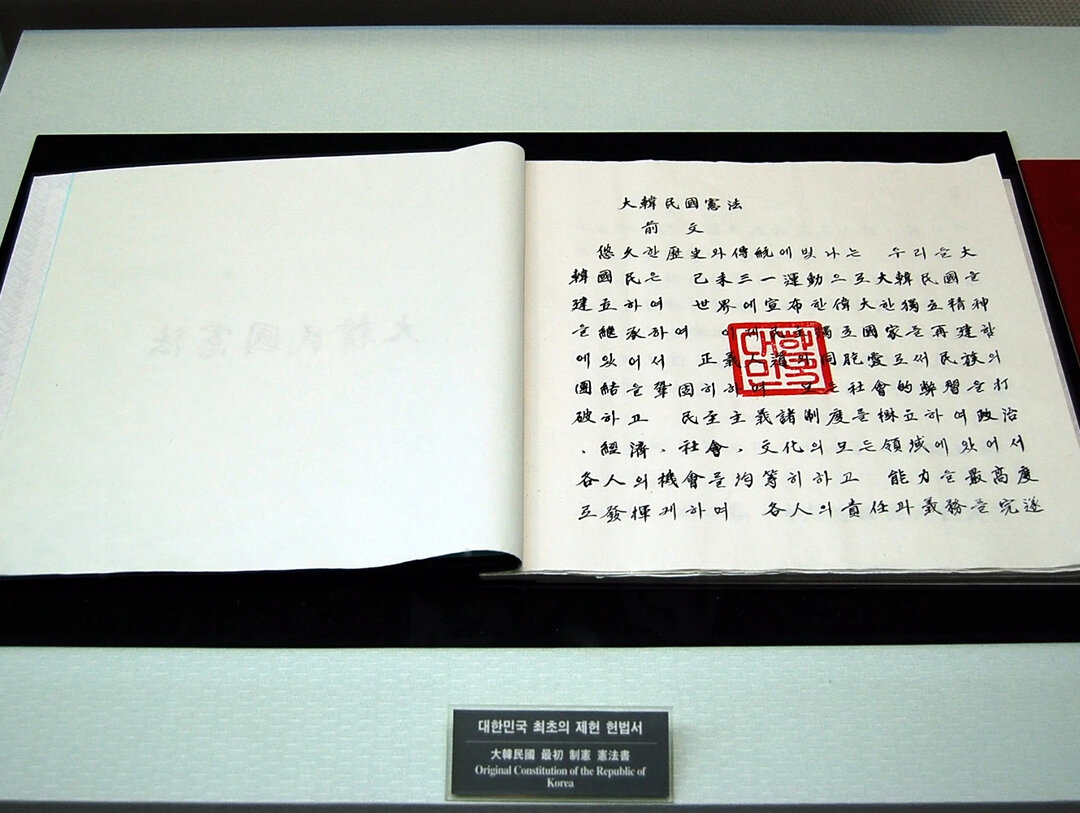 大韓民國憲法
前文
悠久한 歷史와 傳統에 빛나는 우리들 大
韓國民은 己未三一運動으로 大韓民國을
建立하여 世界에 宣布한 偉大한 獨立精神
을 繼承하여 이제 民主獨立國家를 再建함
에 있어서 正義人道와 同胞愛로써 民族의
團結을 鞏固히하며 모든 社會的 弊習을 打
破하고 民主主義諸制度를 樹立하여 政治
、經濟、社會、文化의 모든 領域에 있어서
各人의 機會를 均等히하고 能力을 最高度
로 發揮케하며 各人의 責任과 義務를 完遂
대한민국
대한민국 최초의 제헌 헌법서
大韓民國 最初 制憲 憲法書
Original Constitution of the Republic of
Korea